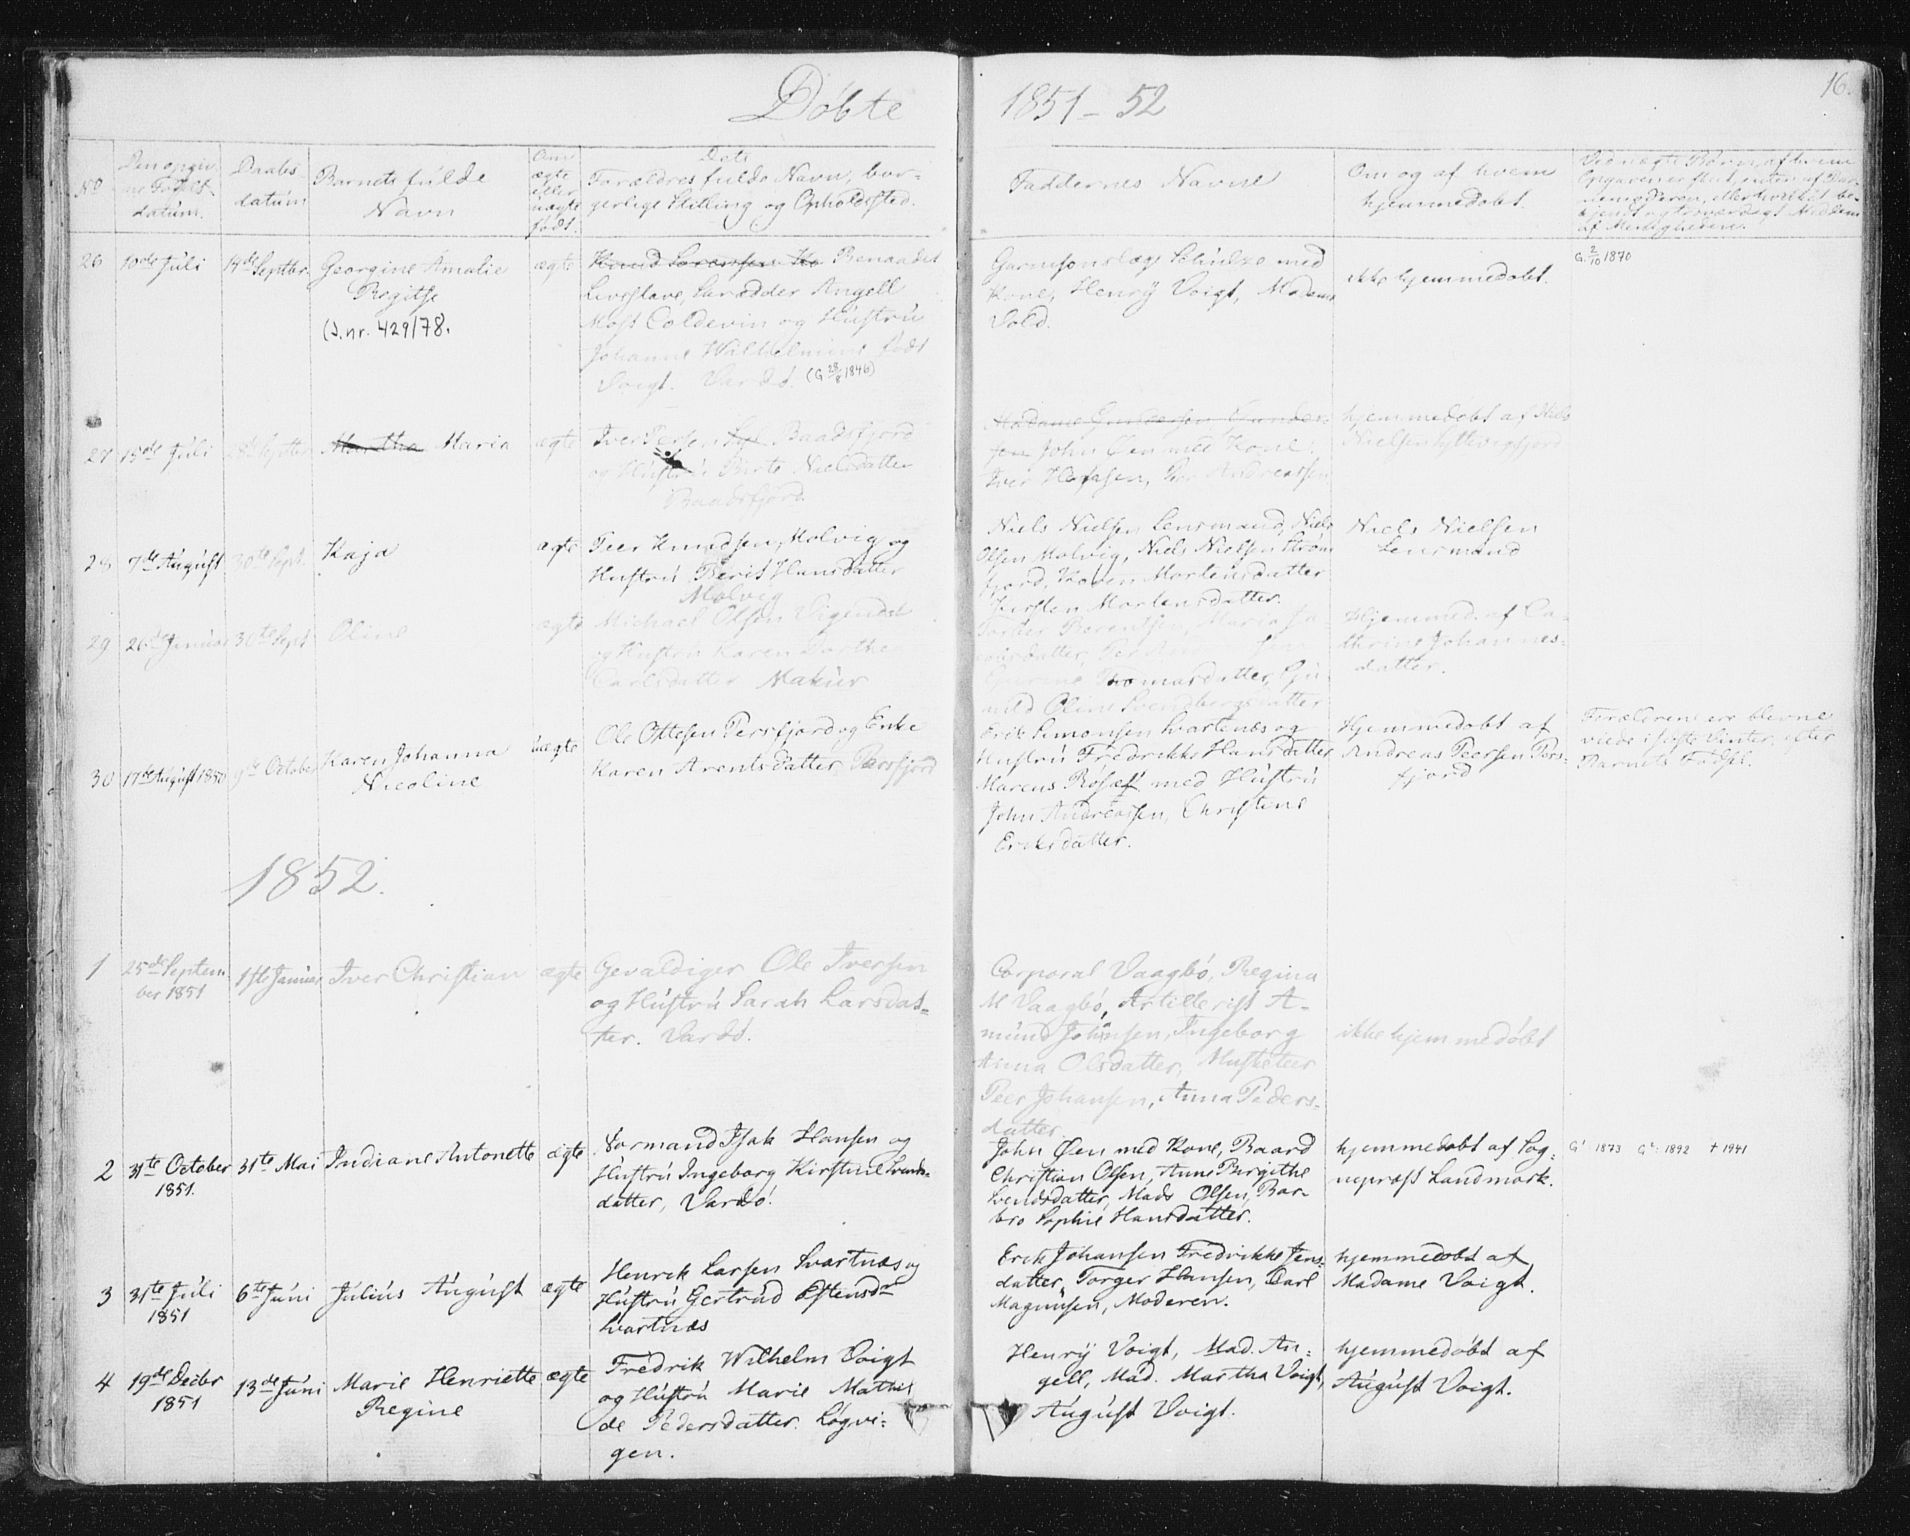 Döbte 1851 - 52
16.
No
Den opgiv-
ne Födsels
datúm.
Daabs
datúm
Barnets fúlde
Navn
Om
ægte
eller
úægte
födt.
Dets
Forældres fulde Navn, bor-
gerlige Stilling og Opholdssted.
Faddernes Navne
Om og af hvem
hjemmedöbt.
26 10de Júli 14de Septbr. Georgine Amalie ægte Knud Sorensen Ko Benaadet
Regitse
(J.nr. 429/78.
Livsslave, Skrædder Angell
Most Coldevin og Hústrú
Johanne Wilhelmine födt
Voigt. Vardö. (G 28/8 1846)
Garnisonslæge Schúlze med
Kone, Henrÿ Voigt, Madam
Vold.
ikke hjemmedöbt.
G. 2/10 1870
27 15de Júli Martha Maria ægte Iver Baadsfjord
og Hústrú Berte Nielsdatter
Baadsfjord
Madame Gundersen, Gunder-
sen John Öen med Kone.
Iver Hansen, Andreassen
hjemmedöbt af Niels
Nielsen
28 7de Aúgúst 30te Sept. Kaja ægte Peer Knudsen, Molvig og
Hustrú Berit Hansdatter
Molvig
Niels Nielsen Lensmand, Niels
Olsen Molvig, Niels Nielsen Ström
fjord, Karen Mortensdatter
Kirsten Mortensdatter.
Niels Nielsen
Lensmand
29 26de Januar 30te Sept Oline ægte Michael Olsen
og Hustrú Karen Dorthe
Carlsdatter Makúer
Berentsen, Maria
Thomasdatter,
Oline Svendbergsdatter
Hjemmed. af Ca-
thrine Johannes-
datter.
30 17de Aúgúst 1850 9de October Karen Johanna
Nicoline
úægte Ole Ottesen Persfjord og Enke
Karen Arentsdatter, Persfjord
Erik Simonsen Svartnæs og
Hustrú Fredrikke Hansdatter,
Marcus Rosæf med Hústrú
John Andreassen, Christine
Eriksdatter.
Hjemmedöbt af
Andreas Peersen Pers-
fjord
Forældrene ere blevne
viede i sidste Vinter, efter
Barnets Födsel.
1852.
1 25de Septem-
ber 1851
1ste Januar Iver Christian ægte Gevaldiger Ole Iversen
og Hústrú Sarah Larsdat-
ter. Vardö.
Corporal Vaagbö, Regina
M Vaagbö, Artillerist A-
múnd Johnsen, Ingeborg
Anna Olsdatter, Musketeer
Peer Johansen, Anna Peders-
datter
ikke hjemmedöbt
2 31te October
1851.
31te Mai Indiane Antonette ægte Normand Isak Hansen og
Hústrú Ingeborg Kirstine Svends-
datter, Vardö.
John Öen med Kone, Baard
Christian Olsen, Anne Birgithe
Svendsdatter, Mads Olsen, Bar-
bro Sophie Hansdatter.
hjemmedöbt af Sog-
nepræst Landmark.
G1 1873 G2: 1892 † 1941
3 31te Júli
1851
6te Júni Júliús Aúgúst ægte Henrik Larsen Svartnæs og
Hústrú Gertrúd Estensdr
Svartnæs
Erik Johansen Fredrikke Jens-
datter, Torger Hansen, Carl
Magnúsen, Moderen.
hjemmedöbt af
Madame Voigt.
4 19de Decbr
1851
13de Júni Marie Henriette
Regine
ægte Fredrik Wilhelm Voigt
og Hústrú Marie Mathil
de Pedersdatter. Lögvi-
gen.
Henrÿ Voigt, Mad. An-
gell, Mad. Martha Voigt,
Aúgúst Voigt.
hjemmedöbt af
Aúgúst Voigt.